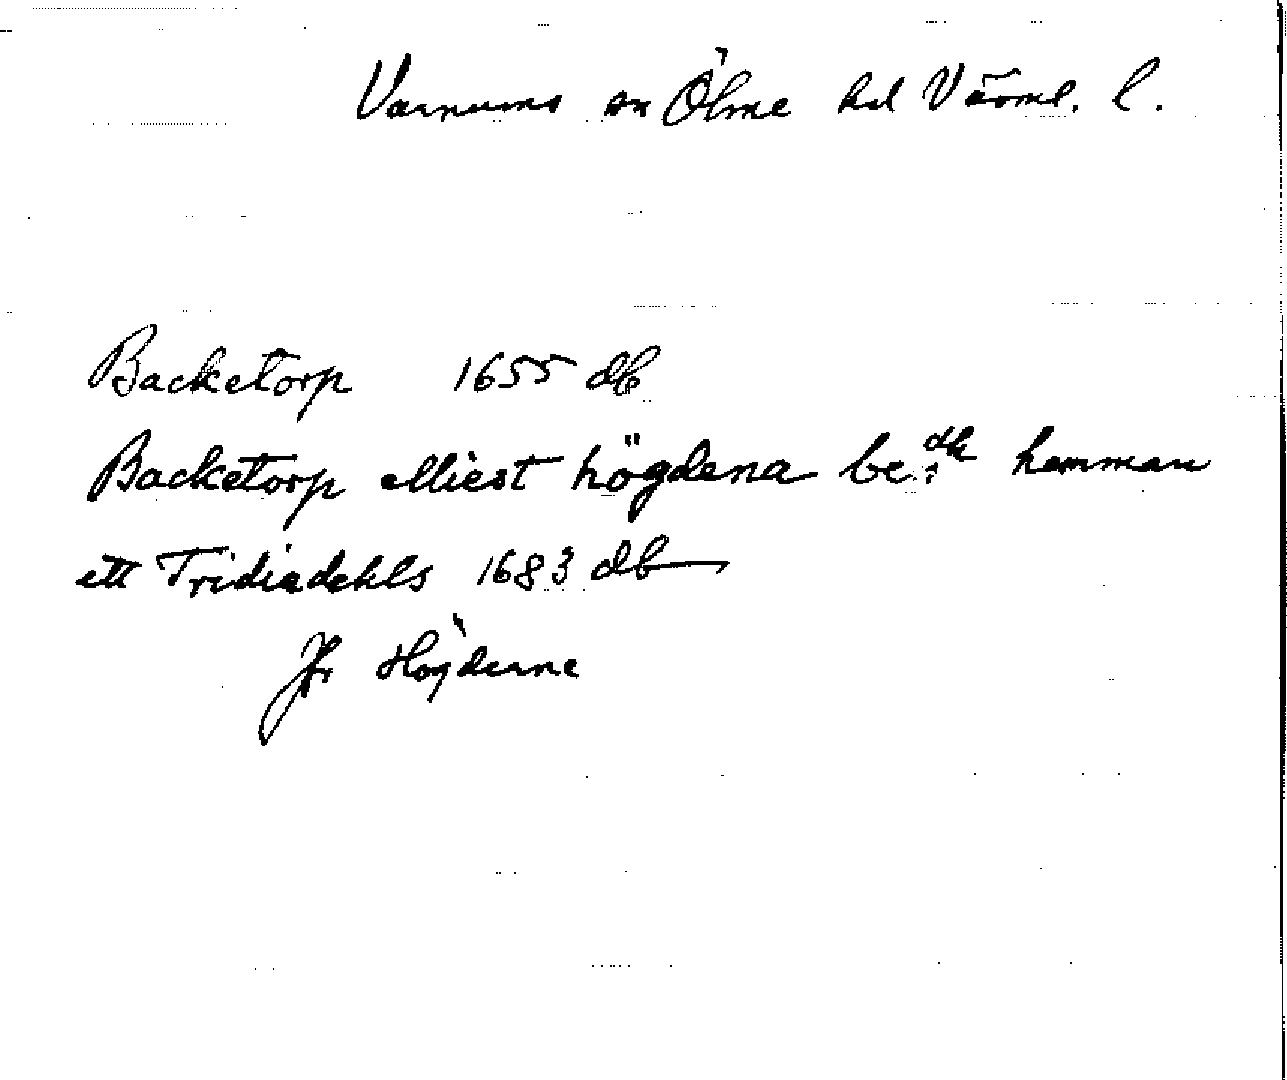 Varnums sn Ölme hd Värml. l.
Backetorp 1655 db
Backetorp elliest högdena be:dh hemman
ett Tridiedehls 1683 db
Jfr Höjderne